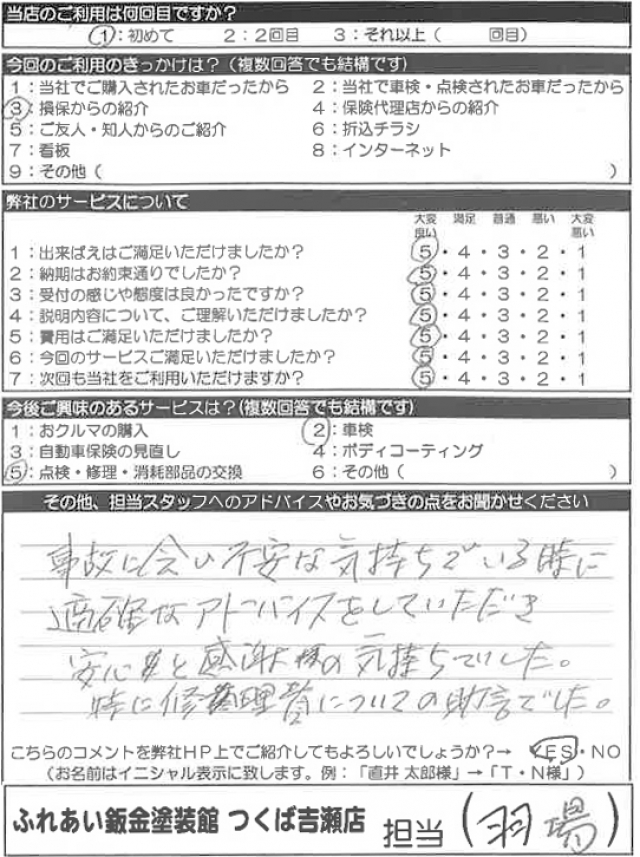 当店のご利用は何回目ですか？
1：初めて 2：2回目 3：それ以上（ 回目）
今回のご利用のきっかけは？（複数回答でも結構です）
1：当社でご購入されたお車だったから 2：当社で車検・点検されたお車だったから
3：損保からの紹介 4：保険代理店からの紹介
5：ご友人・知人からのご紹介 6：折込チラシ
7：看板 8：インターネット
9：その他（ ）
弊社のサービスについて
大変良い 満足 普通 悪い 大変悪い
1：出来ばえはご満足いただけましたか？ 5・4・3・2・1
2：納期はお約束通りでしたか？ 5・4・3・2・1
3：受付の感じや態度は良かったですか？ 5・4・3・2・1
4：説明内容について、ご理解いただけましたか？ 5・4・3・2・1
5：費用はご満足いただけましたか？ 5・4・3・2・1
6：今回のサービスご満足いただけましたか？ 5・4・3・2・1
7：次回も当社をご利用いただけますか？ 5・4・3・2・1
今後ご興味のあるサービスは？（複数回答でも結構です）
1：おクルマの購入 2：車検
3：自動車保険の見直し 4：ボディコーティング
5：点検・修理・消耗部品の交換 6：その他（ ）
その他、担当スタッフへのアドバイスやお気づきの点をお聞かせください
事故に会い不安な気持ちでいる時に
適確なアドバイスをしていただき
安心と感謝の気持ちでした。
特に修理費についての助言でした。
こちらのコメントを弊社HP上でご紹介してもよろしいでしょうか？→ YES・NO
（お名前はイニシャル表示に致します。例：「直井 太郎様」→「T・N様」）
ふれあい鈑金塗装館 つくば吉瀬店 担当（羽場）